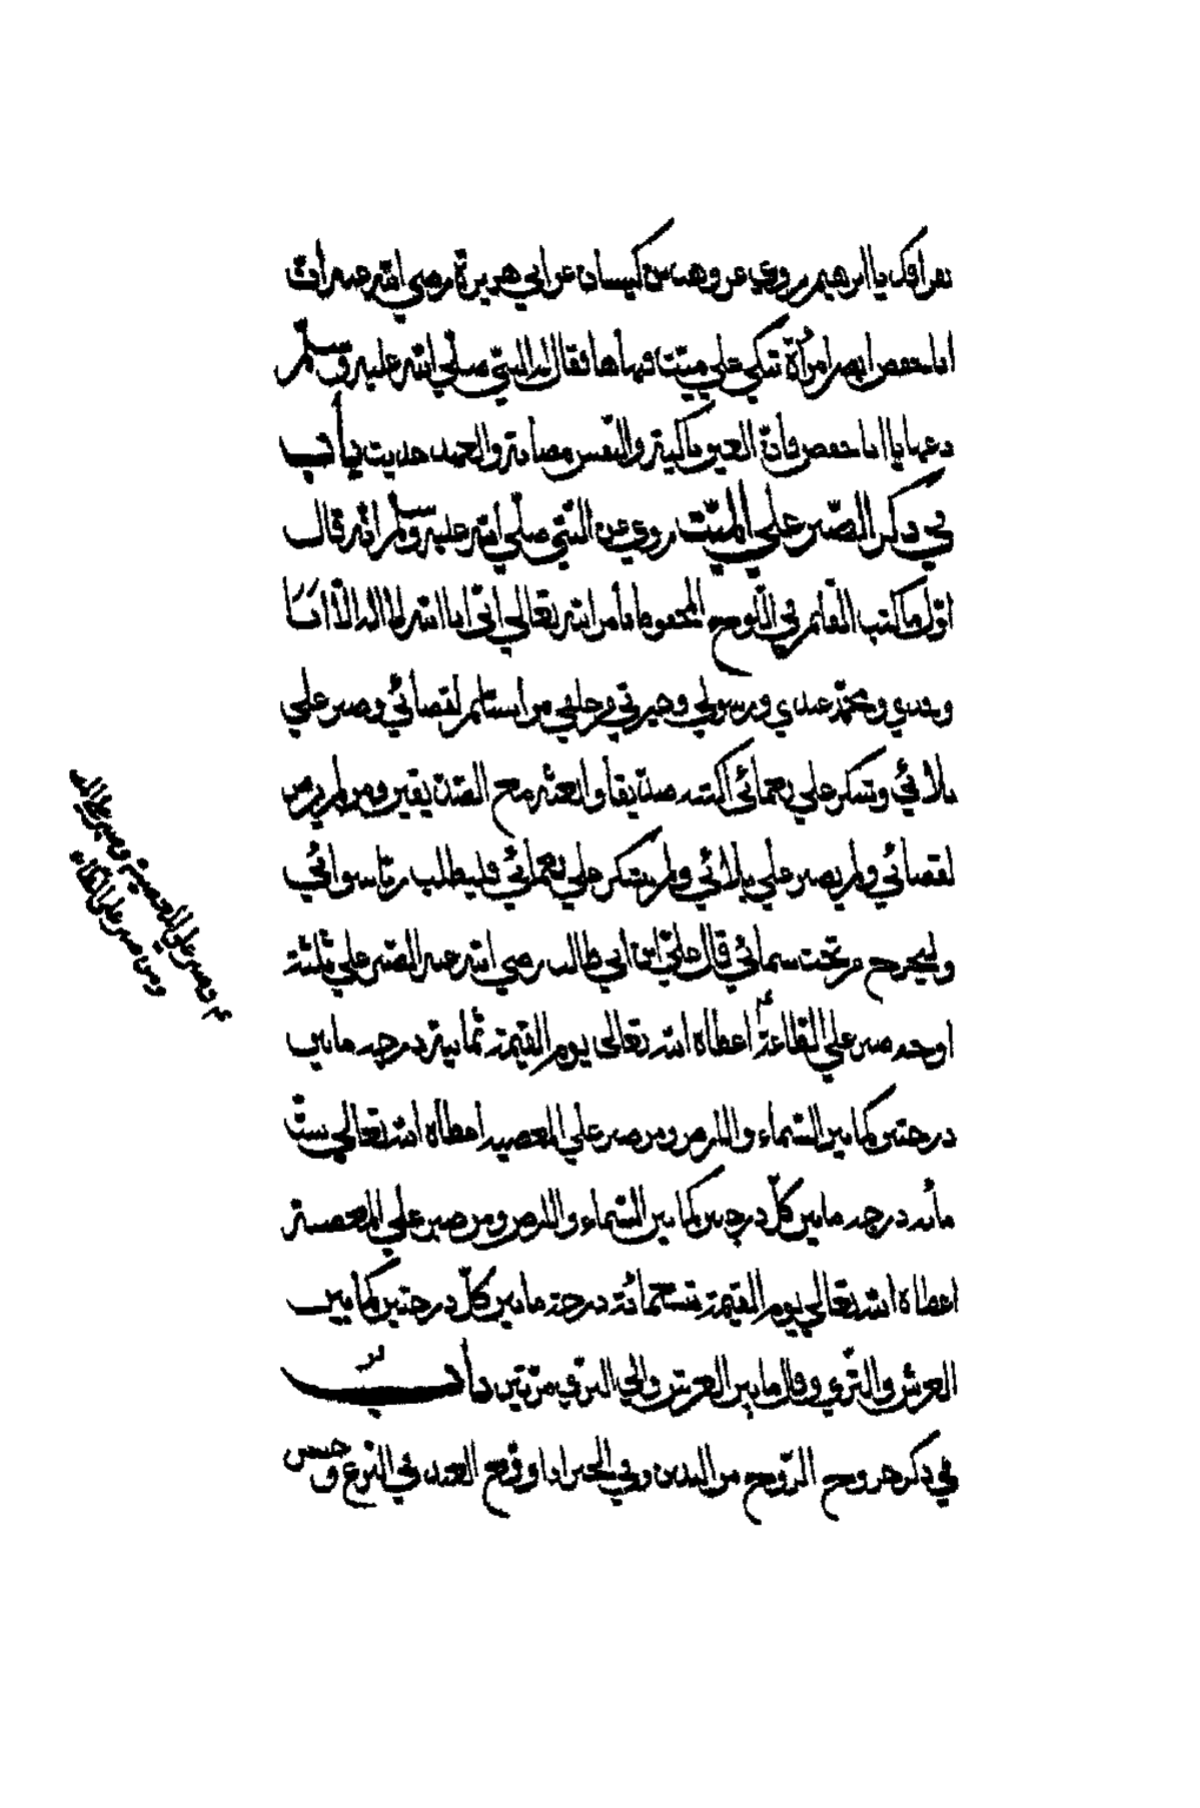 بفراقك يا ابرهيم روي عن وهب بن كيسان عن ابي هريرة رضي الله عنه ان
ابا حفص ابصر امرأة تبكي علي ميّت فنهاها فقال له النبيّ صلّي الله عليه وسلّم
دعها يا ابا حفص فانّ العين باكية والنّفس مصابة والعهد حديث باب
في ذكر الصّبر علي الميّت روي عن النّبيّ صلّي الله عليه وسلم انّه قال
اوّل ما كتب القلم في اللّوح المحفوظ بأمر الله تعالي انّي انا الله لا اله الّا انا
ومحمّد عبدي ورسولي وخيرتي من خلقي من استسلم لقضائي وصبر علي
بلائي وشكر علي نعمائي اكتبه صدّيقا وابعثه مع الصّدّيقين ومن لم يرض
لقضائي ولم يصبر علي بلائي ولم يشكر علي نعمائي فليطلب ربّا سوائي
وليخرج من تحت سمائي قال عليّ ابن ابي طالب رضي الله عنه الصّبر علي ثلثة
اوجه صبر علي الطّاعة اعطاه الله تعالي يوم القيمة ثمانية درجه ما بين
درجتين كما بين السّماء والارض ومن صبر علي المعصيه اعطاه الله تعالي ستّ
مأئه درجه ما بين كلّ درجتين كما بين السّماء والارض ومن صبر علي المصيبة
اعطاه الله تعالي يوم القيمة تسعمائة درجة ما بين كلّ درجتين كما بين
العرش والثّري وقال ما بين العرش والي الثري مرّتين باب
في ذكر خروج الرّوح من البدن وفي الخبر اذا وقع العبد في النزع وحبس
وصبر علي المصيبة وصبر علي
ومن صبر علي الطاعة